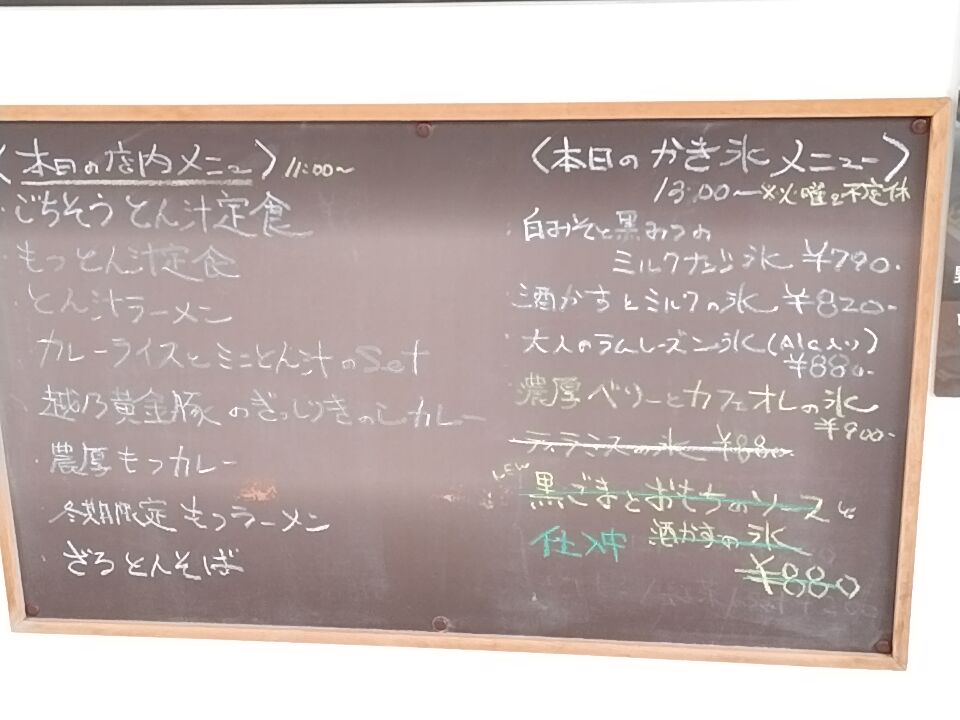 〈本日の店内メニュー〉11:00〜
・ごちそうとん汁定食
・もつとん汁定食
・とん汁ラーメン
・カレーライスとミニとん汁のSet
・越乃黄金豚のぎっしりきのこカレー
・濃厚もつカレー
・冬期限定もつラーメン
・ざるとんそば
〈本日のかき氷メニュー〉
13:00〜※火曜と不定休
・白みそと黒みつの
ミルクナッツ氷 ¥790-
・酒かすとミルクの氷 ¥820-
・大人のラムレーズン氷(Alc入り)
¥880-
・濃厚ベリーとカフェオレの氷
¥900-
・ティラミスの氷 ¥880-
NEW
・黒ごまとおもちのソースと
仕込中 酒かすの氷
¥880